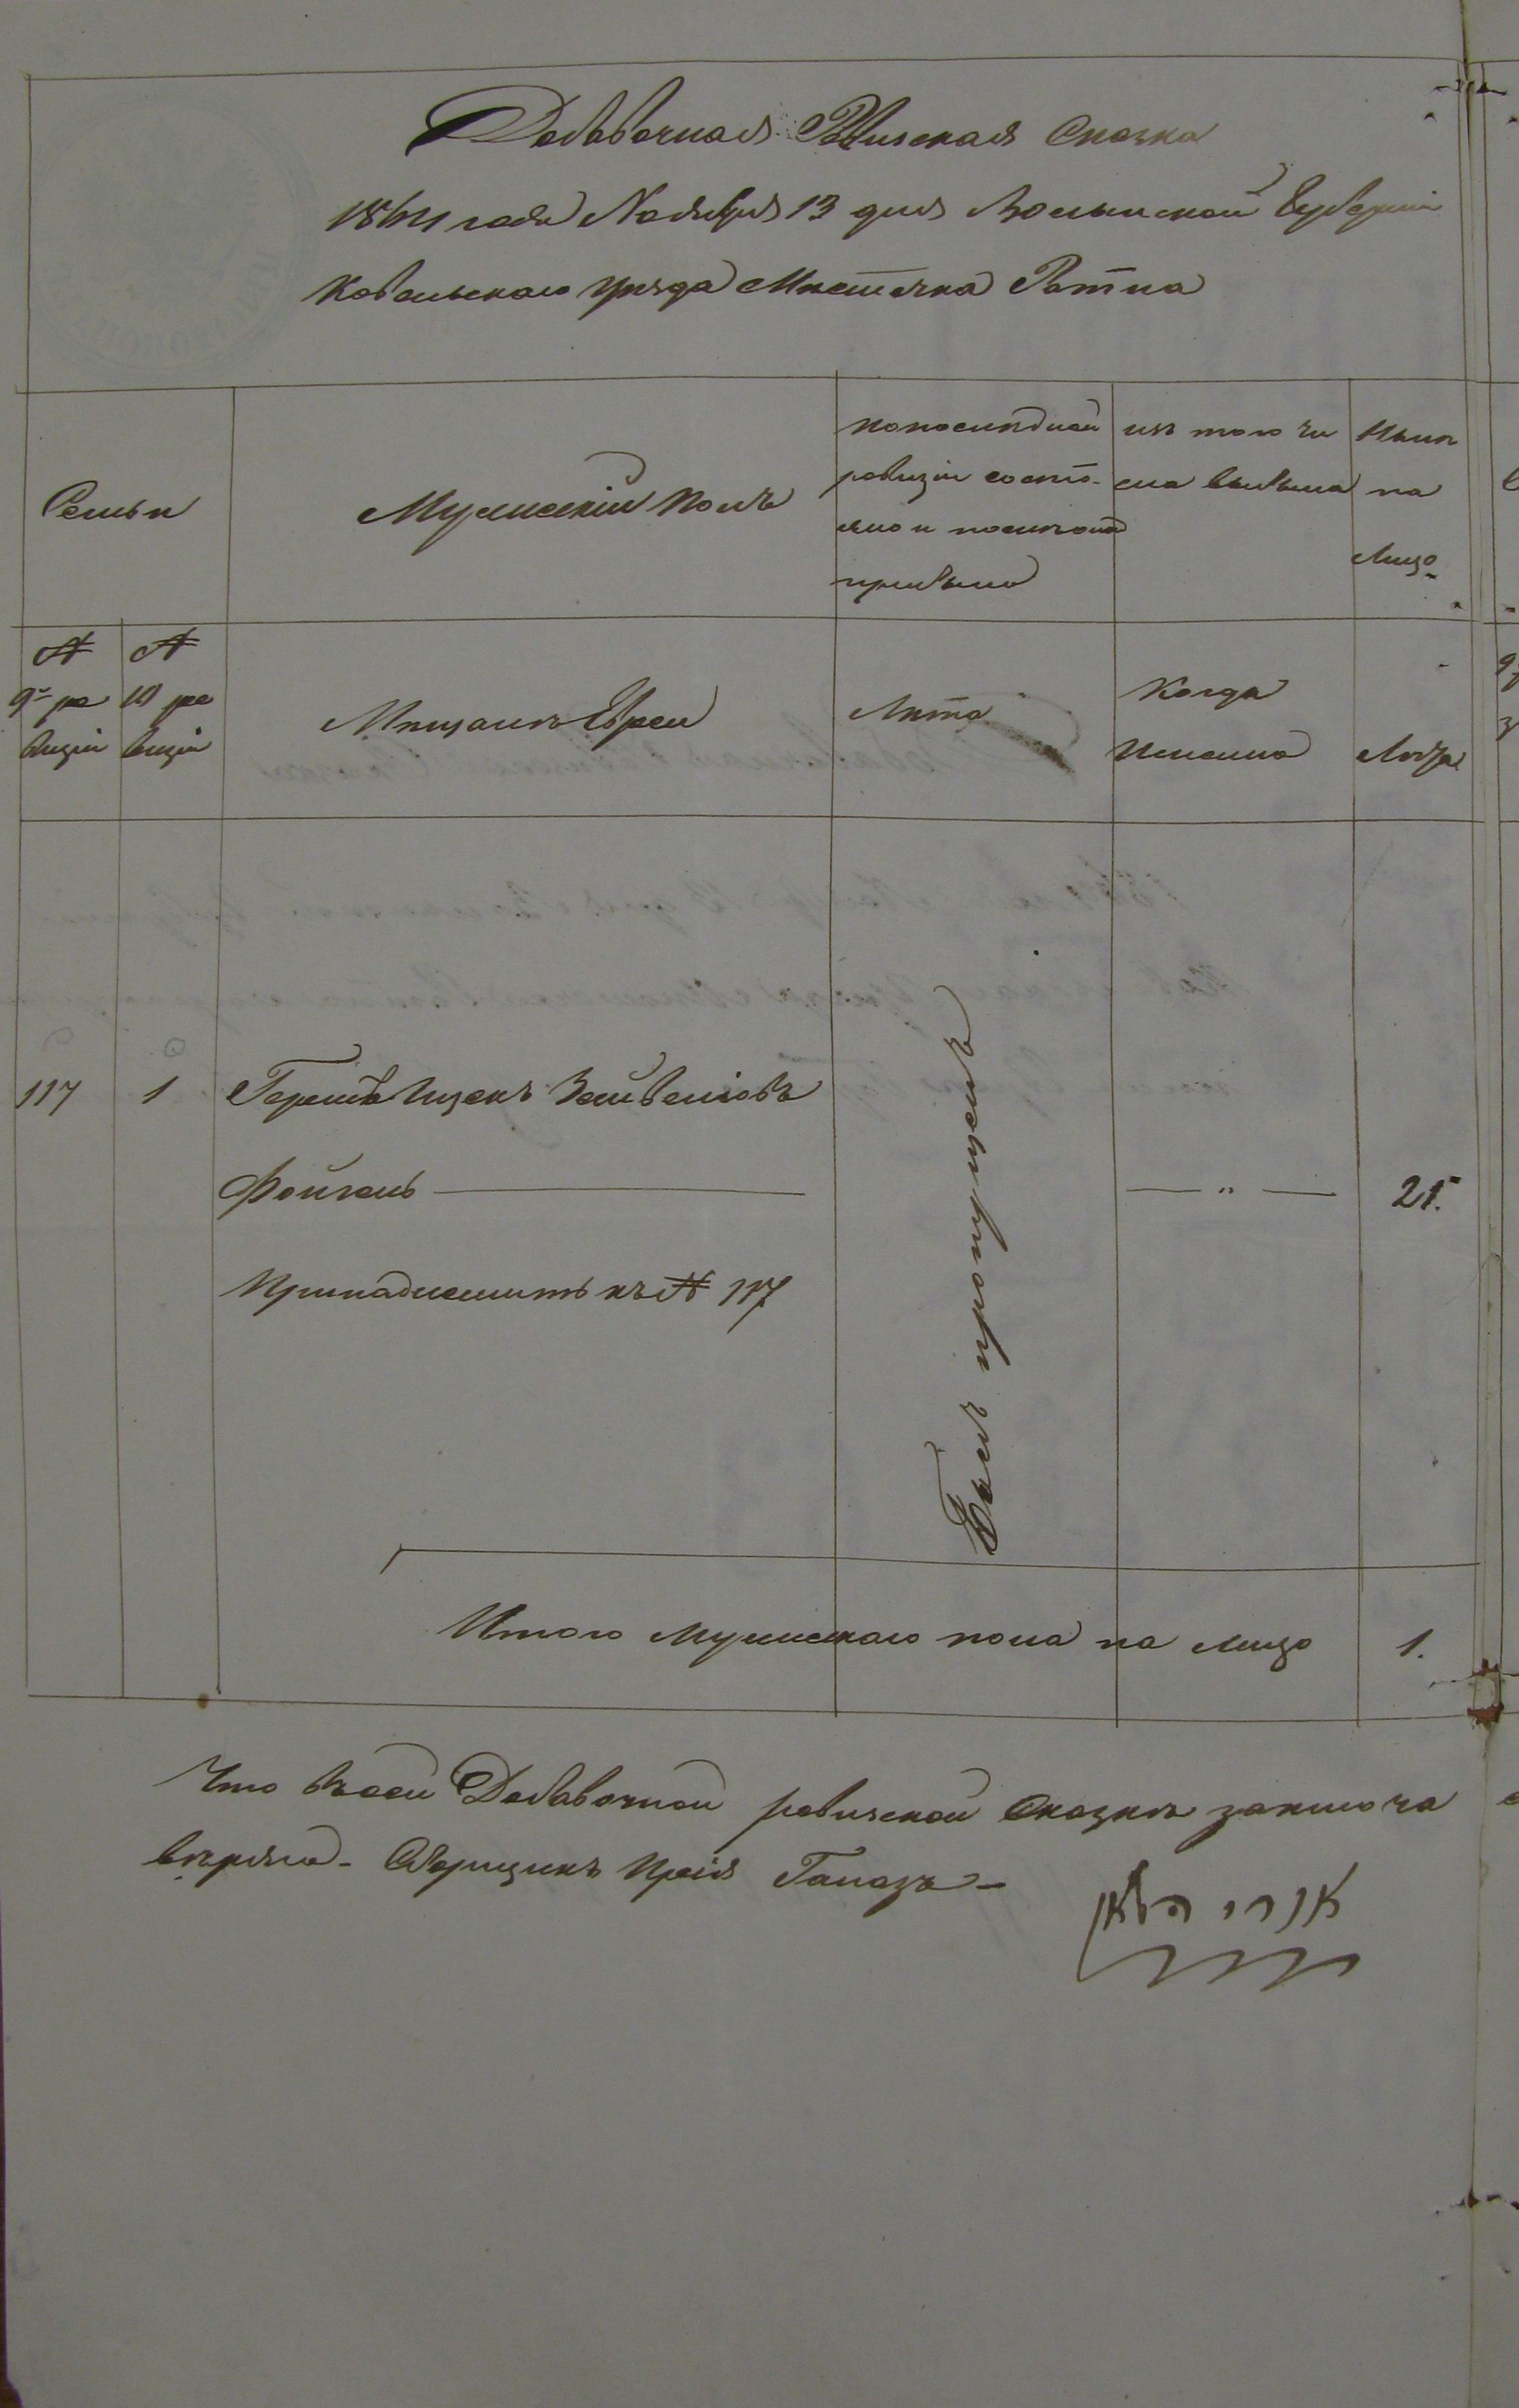 Добавочная Ревизская Сказка
1864 года Ноября 13 дня Волынской Губерніи
Ковельскаго уѣзда Мѣстечка Ратна
Семьи
Мужескій полъ
по послѣдней
ревизіи состо-
яло и послѣ оной
прибыло
изъ того чи
сла выбыло
Нынѣ
на
Лицо
№
9й ре
визіи
№
10 ре
визіи
Мѣщанъ Евреи
Лѣта
Когда
Именно
Лѣта
117
1
Гершъ Ицекъ Зейвеліовъ
Фойгель
— " —
21.
Принадлежитъ къ № 117
Былъ пропущенъ
Итого мужескаго пола на лицо
1.
Что въ сей Добавочной ревизской Сказкѣ заключа